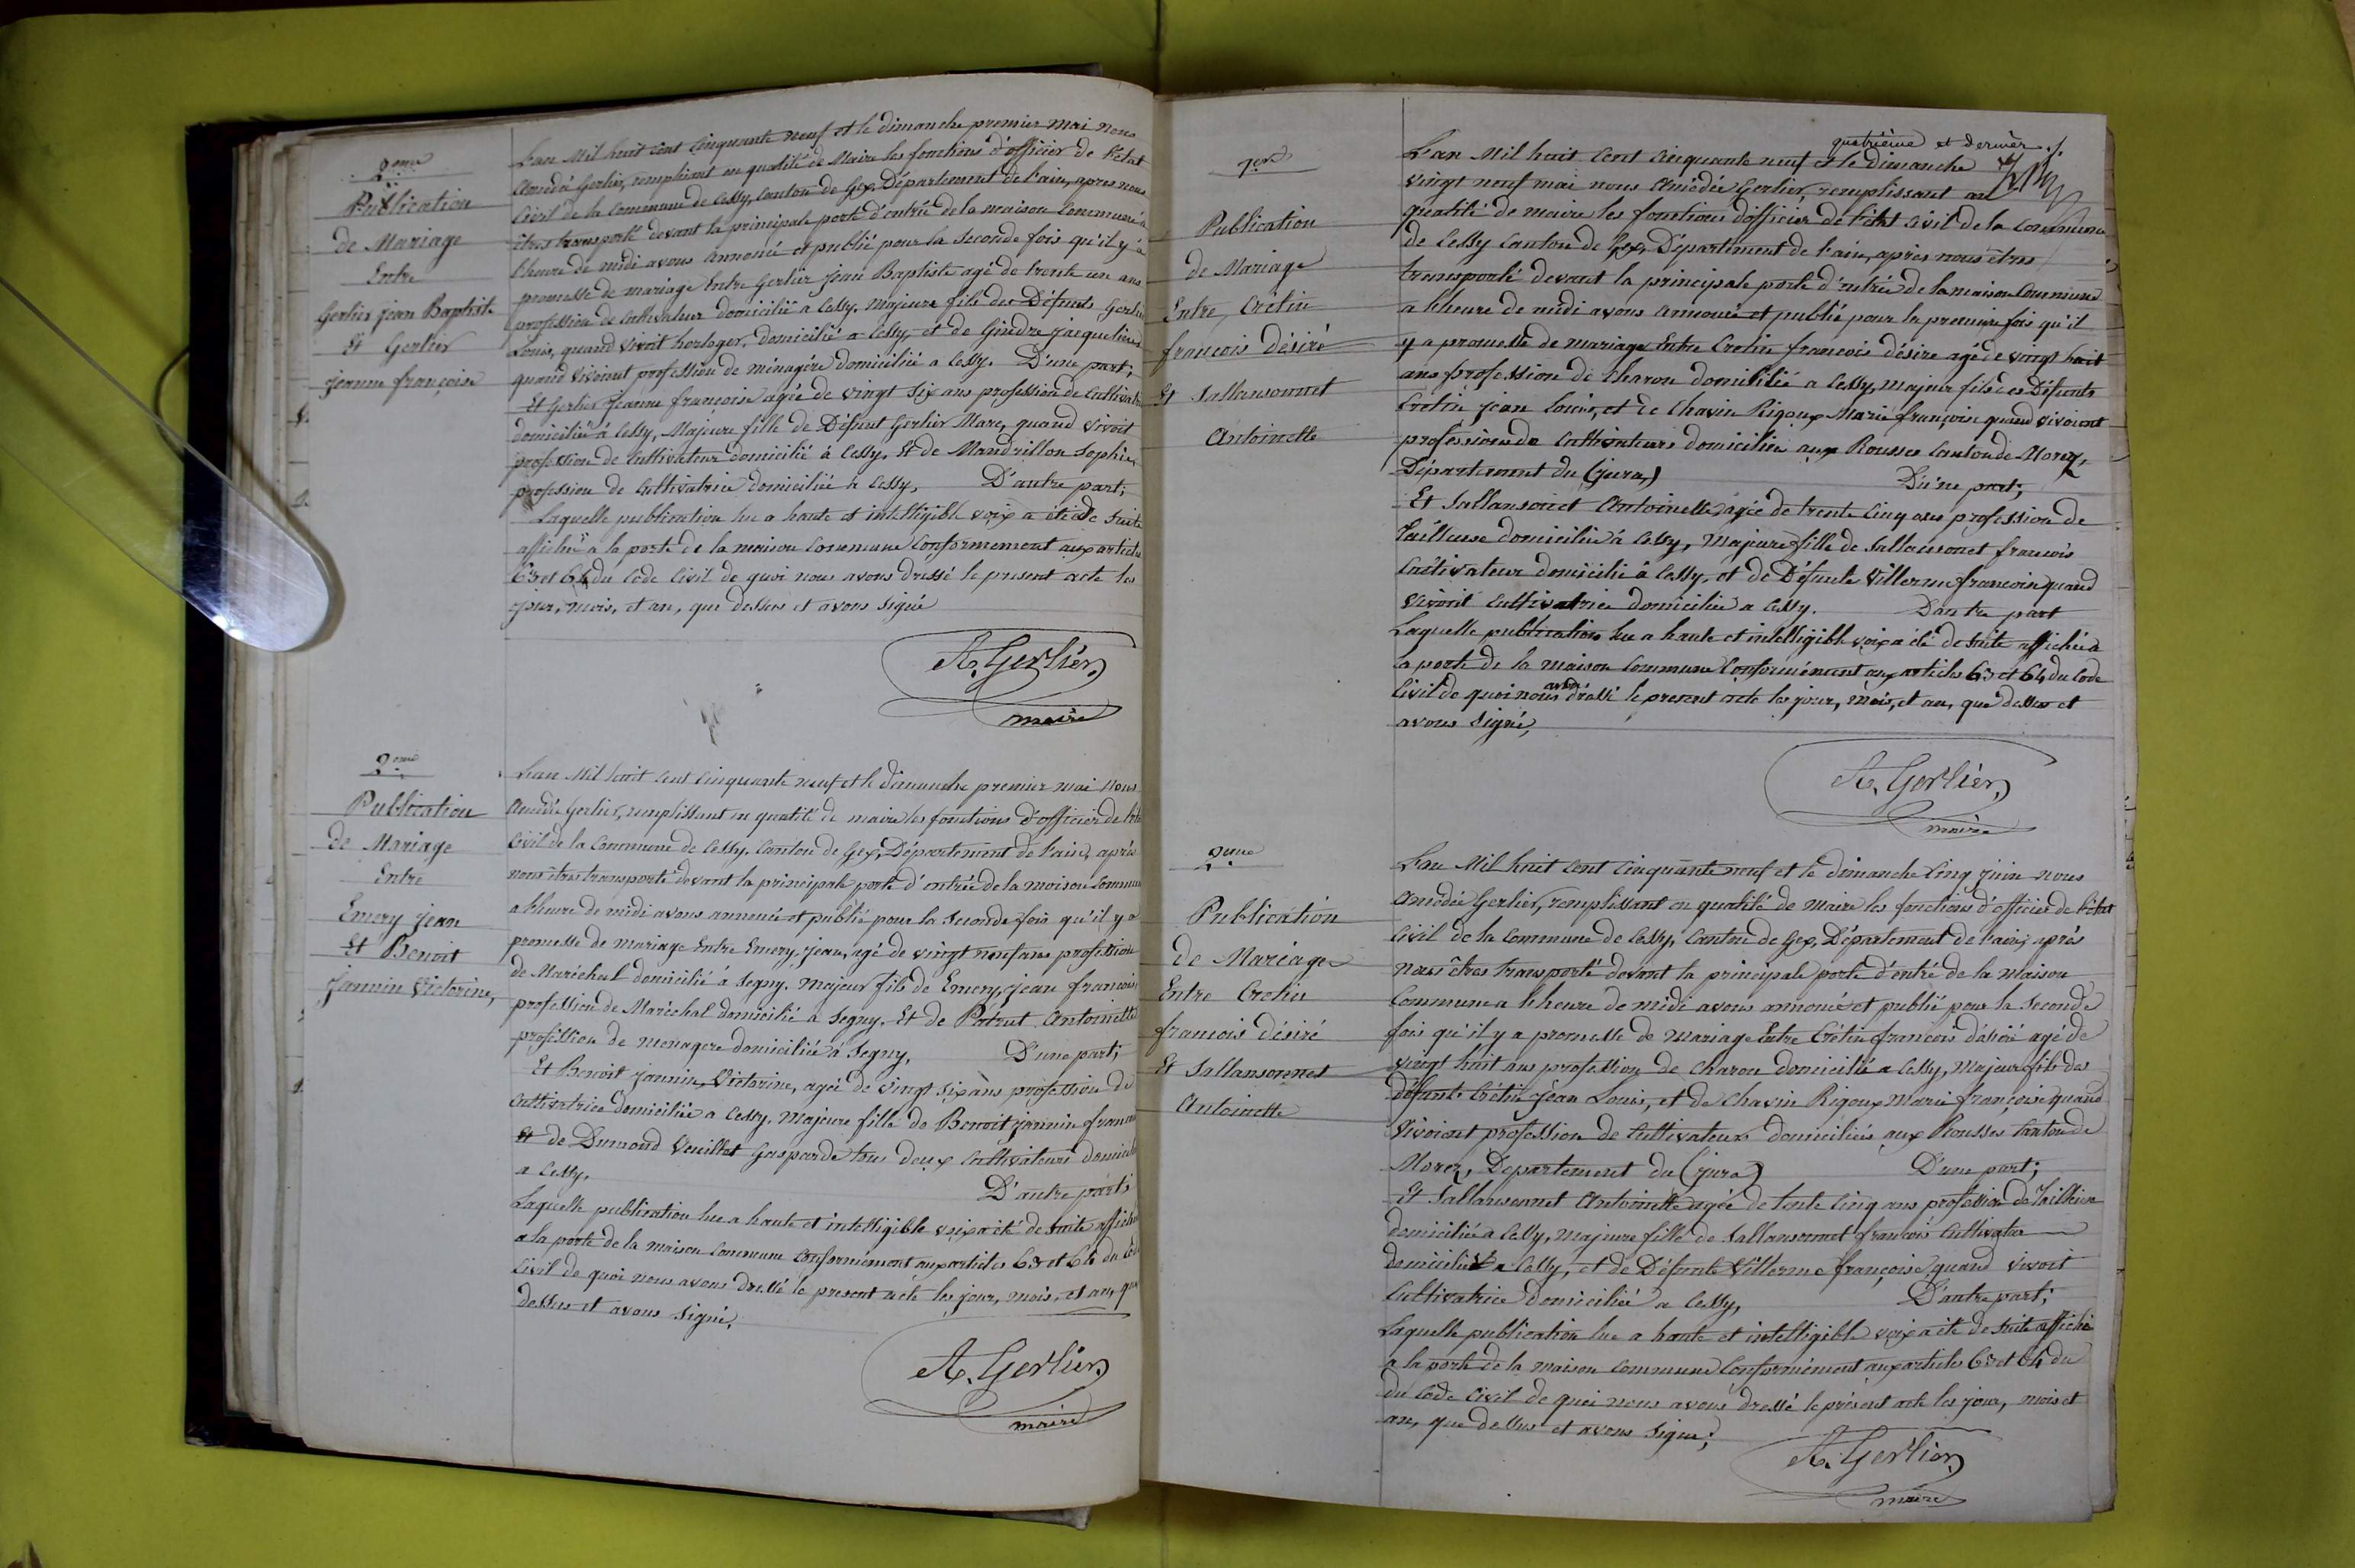 2eme
Publication
de Mariage
Entre
Gerlier jean Baptiste
Et Gerlier
jeanne françoise
L'an Mil huit cent cinquante neuf et le dimanche premier mai nous
Amédé Gerlier, remplirant en qualité de Maire les fonctions d'officier de l'état
Civil de la Commune de Cessy, Canton de Gex, Département de l'ain, apres nous
êtres transporté devant la principale porte d'entrée de la maison Commune a
l'heure de midi avons annoncé et publié pour la Seconde fois qu'il y a
promesse de mariage Entre Gerlier jean Baptiste agé de trente un ans
profession de Cultivateur domicilié a Cessy, Majeure fils des Défunts Gerlier
Louis, quand vivoit horloger, domicilié a Cessy, et de Gindre jacqueline
quand vivoient profession de ménagère domiciliée a Cessy. D'une part;
Et Gerlier Jeanne françoise agée de vingt Six ans profession de Cultivatr
domiciliée à Cessy, Majeure fille de Défunt Gerlier Marc, quand vivoit
profession de Cultivateur domicilié à Cessy. Et de Mandrillon Sophie,
profession de Cultivatrice domiciliée a Cessy, D'autre part;
Laquelle publication lue a haute et intelligible voix a été de suite
affichée a la porte de la maison Commune Conformement aux articles
63 et 64 du Code Civil de quoi nous avons dressé le present acte les
jour, mois, et an, que dessus et avons signé
A. Gerlier
maire
2eme
Publication
de Mariage
Entre
Emery jean
Et Benoit
Jannin Victorine,
L'an Mil huit cent cinquante neuf et le dimanche premier mai Nous
Amédé Gerlier, remplissant en qualité de maire les fonctions d'officier de l'éta
Civil de la Commune de Cessy, Canton de Gex, Département de l'ain, après
nous êtres transporté devant la principale porte d'entrée de la maison Commun
a l'heure de midi avons annoncé et publié pour la Seconde fois qu'il y a
promesse de mariage Entre Emery jean, agé de vingt neuf ans profession
de Maréchal domicilié à Segny. Majeur fils de Emery jean francois
profession de Maréchal domicilié à Segny. Et de Patrut Antoinette
profession de menagere domiciliée à Segny, D'une part;
Et Benoit jannin, Victorine, agée de vingt Six ans profession de
Cultivatrice domiciliée a Cessy. Majeure fille de Benoit jannin francois
Et de Dumond Veuillet Gasparde tous deux Cultivateurs domicilié
a Cessy, D'autre part;
Laquelle publication lue a haute et intelligible voix a été de suite affichée
a la porte de la maison Commune Conformément aux articles 63 et 64 du Code
Civil de quoi nous avons dressé le present acte les jour, mois, et an, que
dessus et avons signé,
A. Gerlier
maire
1ere
Publication
de Mariage
Entre Crétin
francois désiré
Et Sallansonnet
Antoinette
quatrième et dernier
L'an Mil huit Cent Cinquante neuf et le dimanche
vingt neuf mai nous Amédée Gerlier, remplissant en
qualité de maire les fonctions d'officier de l'état Civil de la Commune
de Cessy Canton de Gex, Département de l'ain, apres nous êtres
transporté devant la principale porte d'entrée de la maison Commune
a l'heure de midi avons annoncé et publié pour la premiere fois qu'il
y a promesse de mariage Entre Cretin francois désire agé de vingt huit
ans profession de Charon domicilié a Cessy, majeur fils des Défunts
Cretin jean Louis, et de Chavin Rigoux Marie françoise quand vivoient
profession de Cultivateurs domiciliés aux Rousses Canton de Morez,
Département du (jura) D'une part;
Et Sallansonet Antoinette agée de trente Cinq ans profession de
Tailleuse domiciliée à Cessy, Majeure fille de Sallansonet francois
Cultivateur domicilié à Cessy, et de Défunte Villerme francoise quand
vivoit Cultivatrice domiciliée a Cessy. D'autre part
Laquelle publication lue a haute et intelligible voix a été de suite affichée a
la porte de la maison Commune Conformément aux articles 63 et 64 du Code
avons
Civil de quoi nous dressé le present acte les jour, mois, et an, que dessus et
avons signé,
A. Gerlier
maire
2eme
Publication
de Mariage
Entre Cretin
francois désiré
Et Sallansonnet
Antoinette
L'an Mil huit Cent Cinquante neuf et le dimanche Cinq juin nous
Amédée Gerlier, remplissant en qualité de Maire les fonctions d'officier de l'état
Civil de la Commune de Cessy, Canton de Gex, Département de l'ain, après
nous êtres transporté devant la principale porte d'entré de la maison
Commune a l'heure de midi avons annoncé et publié pour la Seconde
fois qu'il y a promesse de mariage Entre Crétin francois désiré agé de
vingt huit ans profession de Charon domicilié a Cessy, Majeur fils des
défunts Crétin jean Louis, et de Chavin Rigoux Marie françoise quand
vivoient profession de Cultivateurs domiciliés aux Rousses Canton de
Morez, Departement du (jura) D'une part;
Et Sallansonnet Antoinette agée de tente Cinq ans profession de Tailleuse
domiciliée a Cessy, majeure fille de Sallansonnet francois Cultivateur
domicilié a Cessy, et de Défunte Villerme françoise quand vivoit
Cultivatrice domiciliée a Cessy, D'autre part;
Laquelle publication lue a haute et intelligible voix a été de suite affiché
a la porte de la maison Commune Conformément aux articles 63 et 64 du
du Code Civil de quoi nous avons dressé le présent acte les jour, mois et
an, que dessus et avons signé;
A. Gerlier
maire